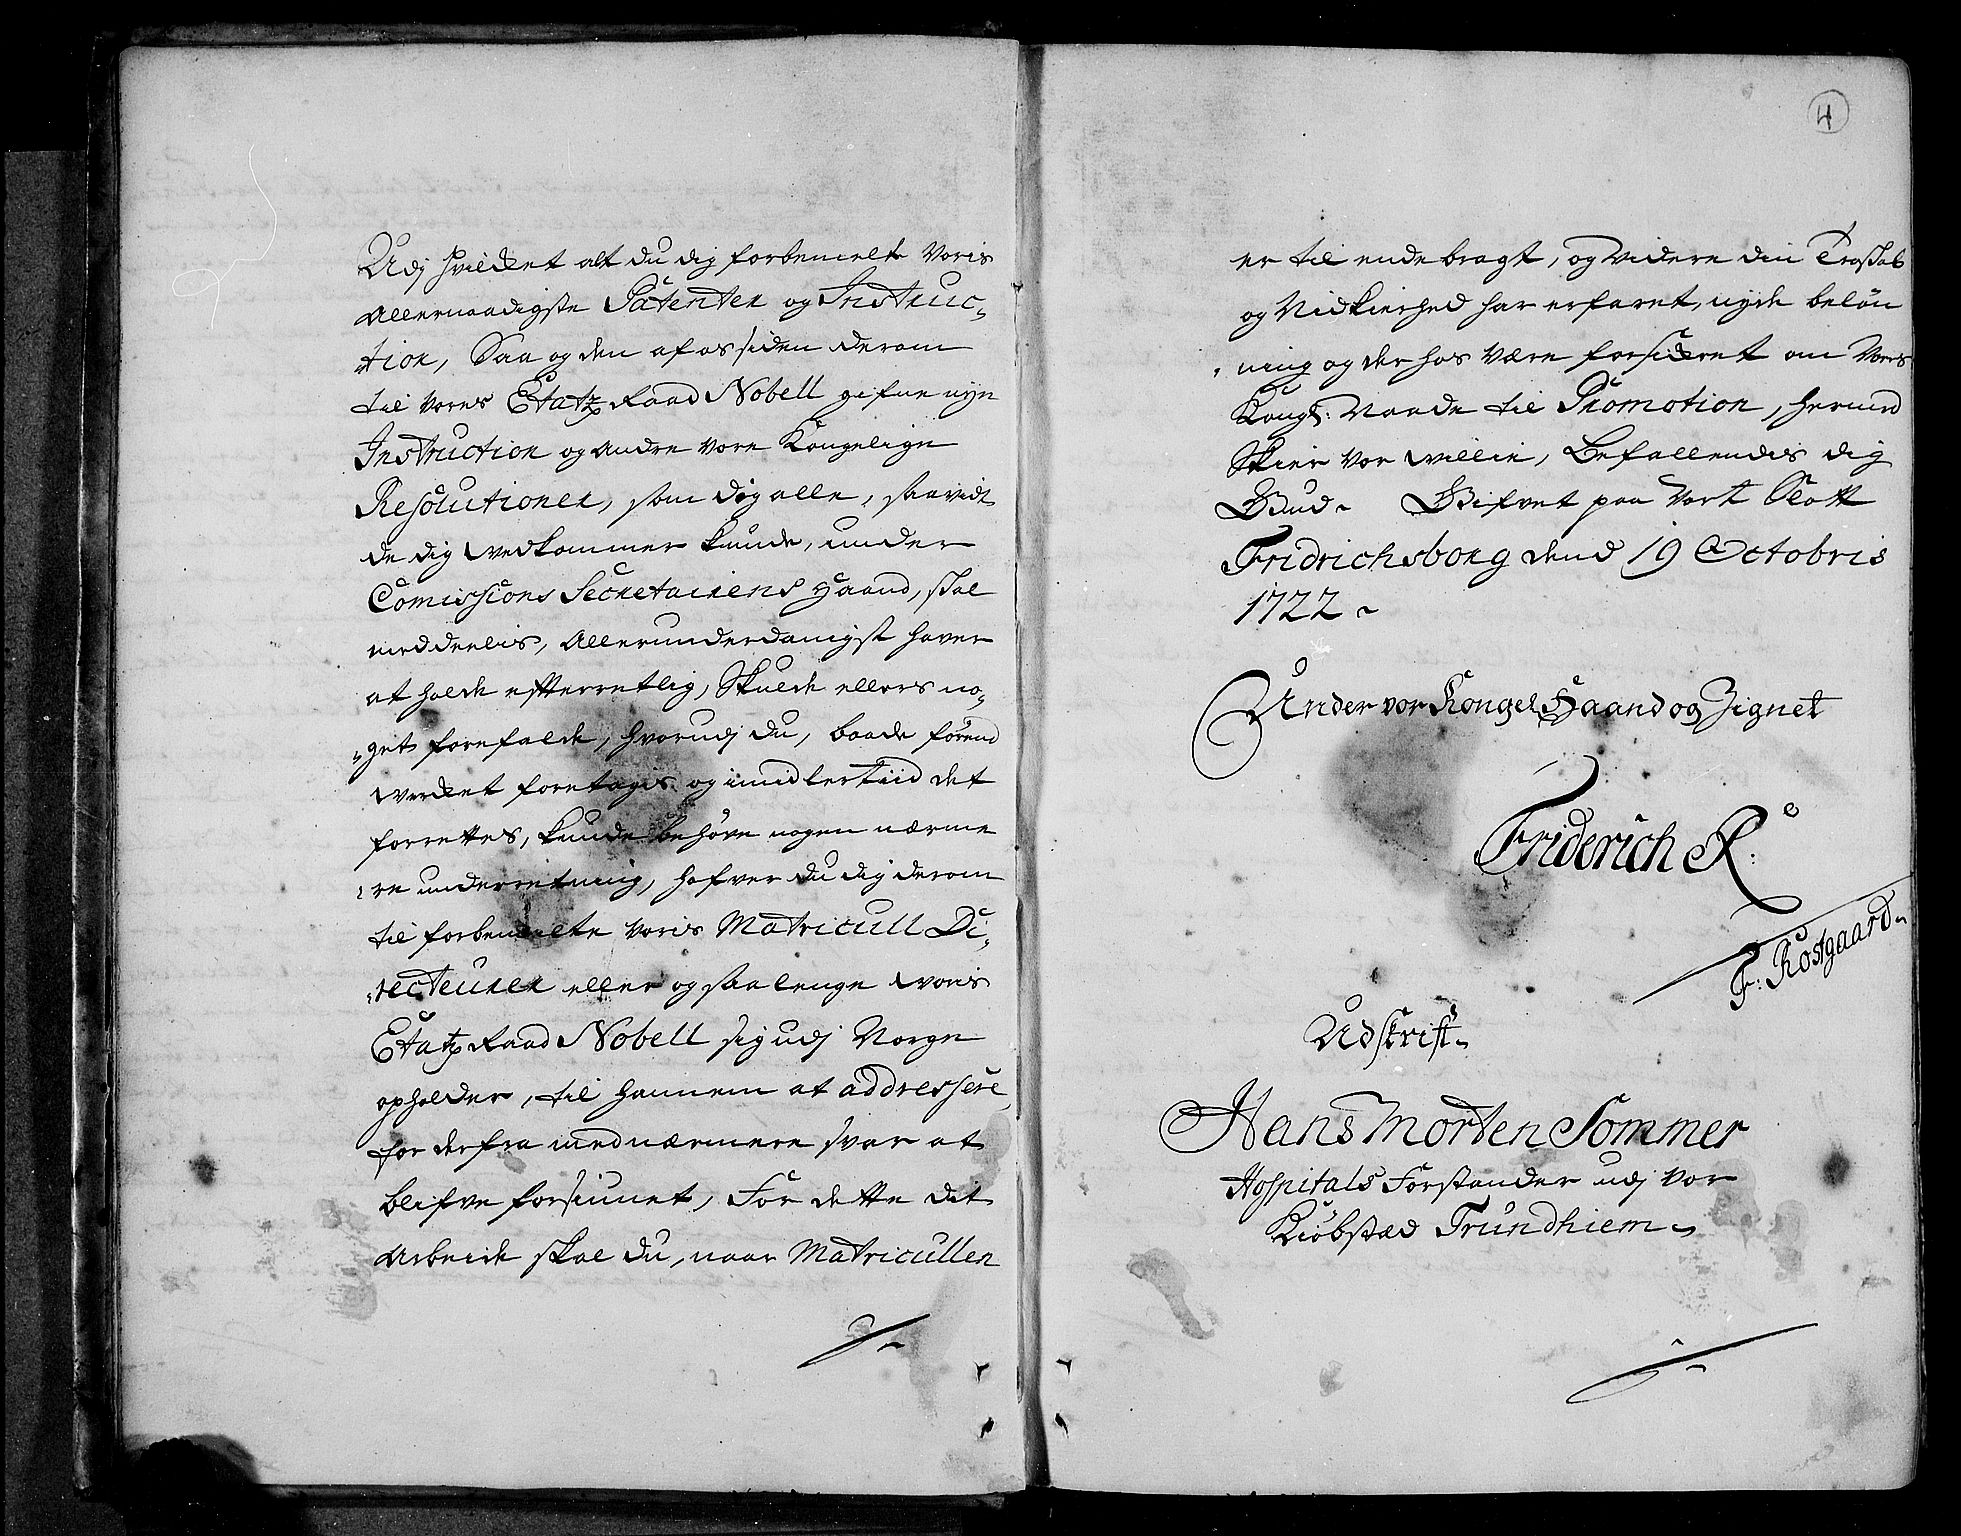 Udj hvilcket alt du dig forbemelte Voris
Allernaadigste Patenter og Instruc-
tion, Saa og den af os siden derom
til Vores Etatz Raad Nobell gifne nye
Instruction og andre Vore Kongelige
Resolutioner, som dig alle, saavidt
de dig vedkommer kunde, under
Comissions Secretairens Haand, skal
meddeelis, Allerunderdanigst haver
at holde efterretlig, Skulde ellers no-
get forefalde, hvorudj du, baadeførend
Wercket foretages og imidlertiid det
forrettes, kunde behøve nogen nærme
re underretning, hafver du dig derom
til forbemelte Voris Matricull Di-
recteurer eller og saa lenge Woris
Etatz Raad Nobell sig udj Norge
opholder, til hannem at addressere
for derfra med nærmere svar at
blifve forsiunet, For dette dit
Arbeide skal du, naar Matricullen
4
er til ende bragt, og Videre din Troskab
og Nidkierhed har erfaret, nyde beløn
ning og der hos Være forsickret om Vores
Kongl: Naade til Promotion, hermed
Skier Vor Willie, Befallendis dig
Gud. Gifvet paa Vort Slott
Fridrichsborg dend 19 Octobris
1722
Under vor Kongel Haand og Zignet
Friderich R:
F: Rostgaard
Udskrift
Hans Morten Sommer
Hospitals Forstander udj Vor
Kiøbstæd Trundhiem